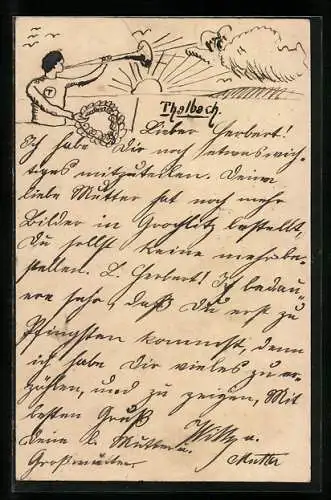 T
Thalbach.
Lieber Herbert!
Ich habe Dir noch etwas wich-
tiges mitzuteilen. Deine
liebe Mutter hat noch mehr
Bilder in Grochlitz bestellt,
Du sollst keine mehr be-
stellen. L. Herbert! Ich bedau-
ere sehr, daß Du erst zu
Pfingsten kommst, denn
ich habe Dir vieles zu er-
zählen, und zu zeigen, Mit
besten Gruß Willy u.
Deine l. Mutter u.
Großmutter. Mutter